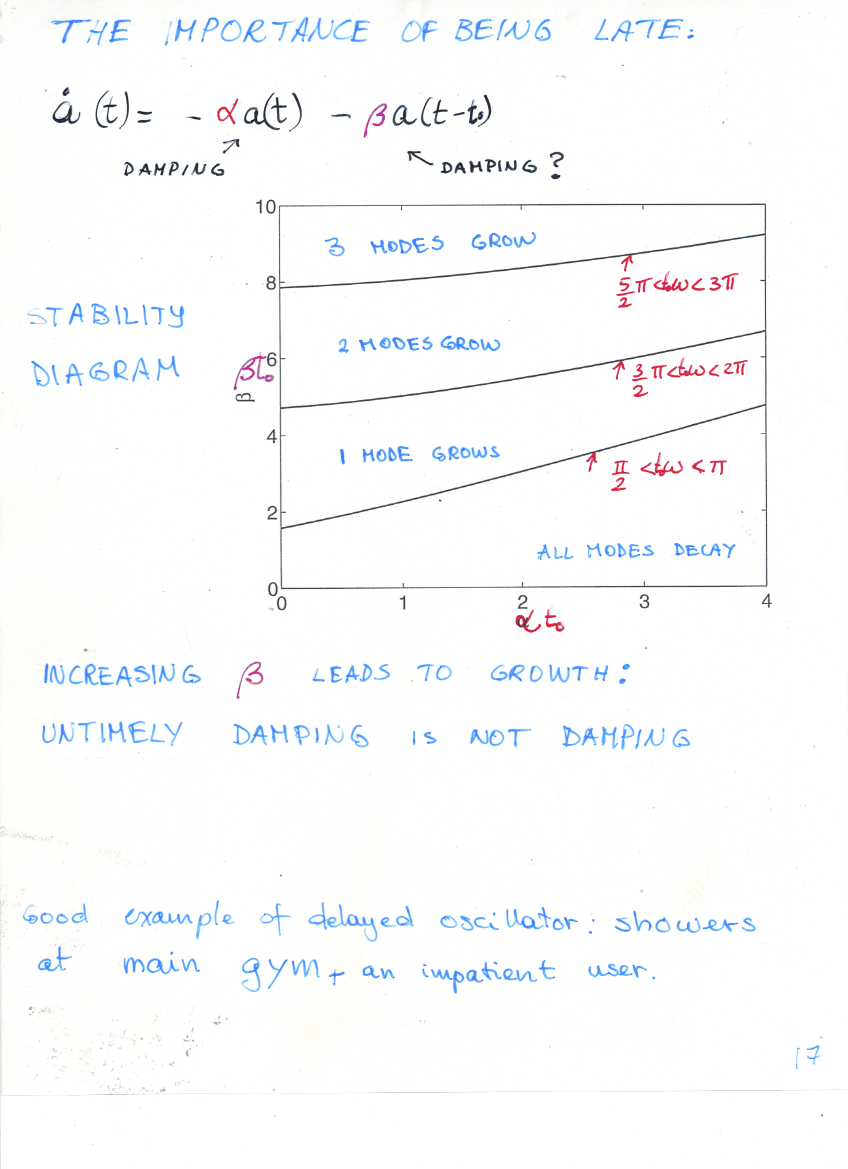 THE IMPORTANCE OF BEING LATE:
ȧ(t) = - αa(t) - βa(t-t₀)
DAMPING
DAMPING?
STABILITY
DIAGRAM
10
8
6
4
2
0
βt₀
β
3 MODES GROW
5/2 π < t₀ω < 3π
2 MODES GROW
3/2 π < t₀ω < 2π
1 MODE GROWS
π/2 < t₀ω < π
ALL MODES DECAY
0 1 2 3 4
αt₀
INCREASING β LEADS TO GROWTH:
UNTIMELY DAMPING IS NOT DAMPING
Good example of delayed oscillator: showers
at main gym + an impatient user.
17